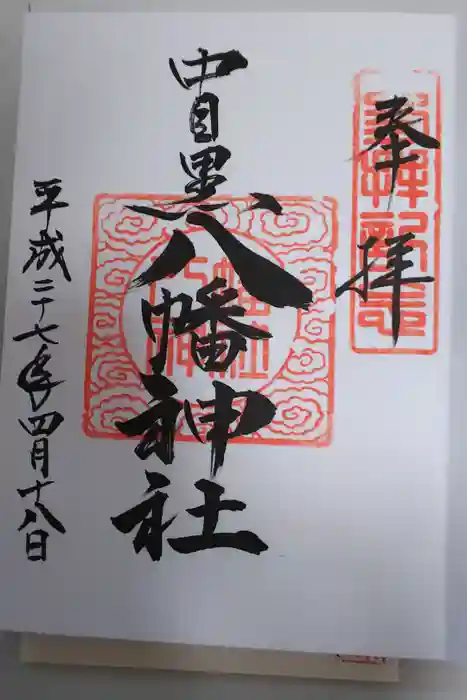 奉拝
中目黒八幡神社
平成二十七年四月十八日